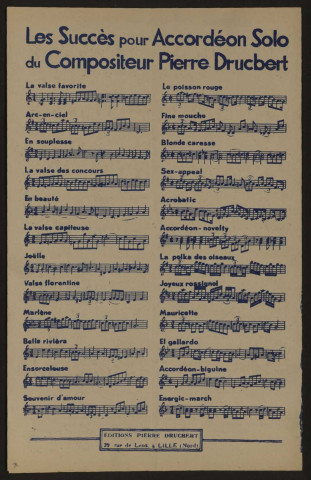 Les Succès pour Accordéon Solo
du Compositeur Pierre Drucbert
La valse favorite
Arc-en-ciel
En souplesse
La valse des concours
En beauté
La valse capiteuse
Joëlle
Valse florentine
Marlène
Belle rivière
Ensorceleuse
Souvenir d'amour
Le poisson rouge
Fine mouche
Blonde caresse
Sex-appeal
Acrobatic
Accordéon-novelty
La polka des oiseaux
Joyeux rossignol
Mauricette
El gallardo
Accordéon-biguine
Energic-march
EDITIONS PIERRE DRUCBERT
rue de à LILLE (Nord)